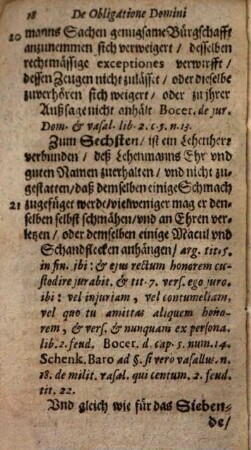 18 De Obligatione Domini
20 manns Sachen genugsame Bürgschafft
anzunemmen sich verweigert / desselben
rechtmässige exceptiones verwirfft /
dessen Zeugen nicht zulässt / oder dieselbe
zuverhören sich weigert / oder zu jhrer
Außsage nicht anhält Bocer. de jur.
Dom. & vasal. lib. 2. c. 5. n. 13.
Zum Sechsten / ist ein Lehenherz
verbunden / deß Lehenmanns Ehr vnd
guten Namen zuerhalten / vnd nicht zu-
gestatten / daß demselben einige Schmach
21 zugefüget werde / vielweniger mag er den-
selben selbst schmähen / vnd an Ehren ver-
letzen / oder demselben einige Macul vnd
Schandflecken anhängen / arg. tit. 5.
in fin. ibi: & ejus rectum honorem cu-
stodire jurabit. & tit. 7. vers. ego juro.
ibi: vel injuriam, vel contumeliam,
vel quo tu amittas aliquem hono-
rem, & vers. & nunquam ex persona.
lib. 2. feud. Bocer. d. cap. 5. num. 14.
Schenk. Baro ad §. si vero vasallus. n.
18. de milit. vasal. qui contum. 2. feud.
tit. 22.
Vnd gleich wie für das Sieben-
de /